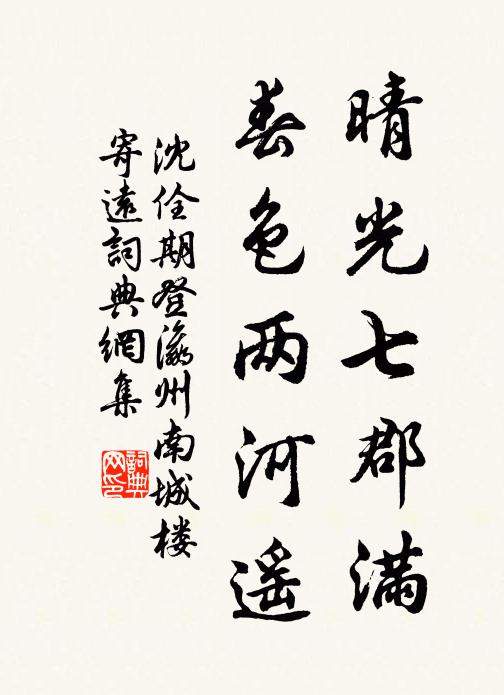 晴光七郡满
春色两河遥
沈佺期登瀛州南城楼
寄遠詞典網集
詞典网印